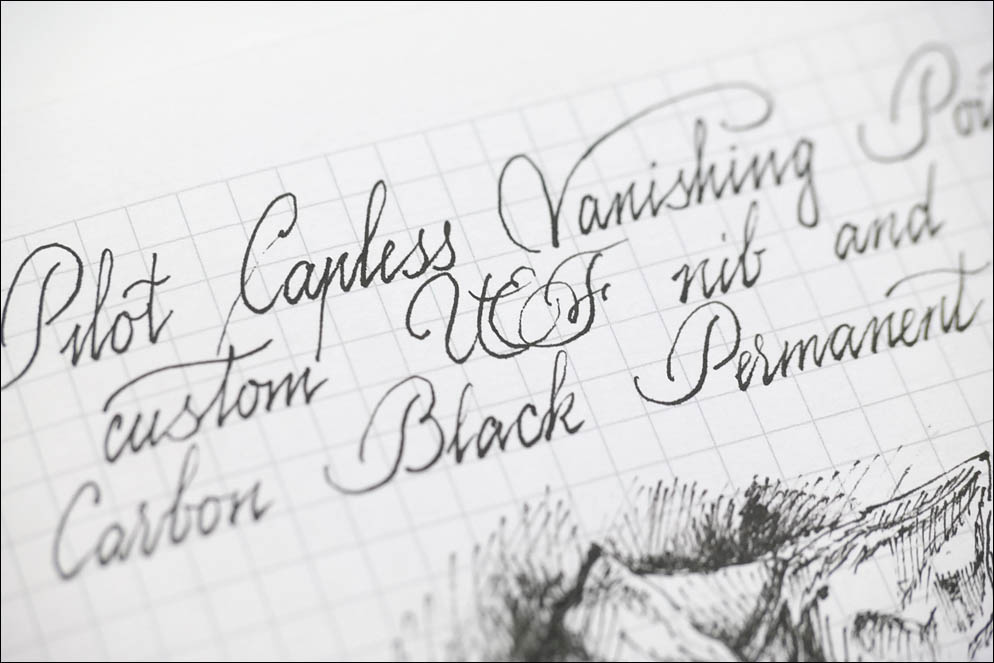 Pilot Capless Vanishing Poi
custom UEF nib and
Carbon Black Permanent